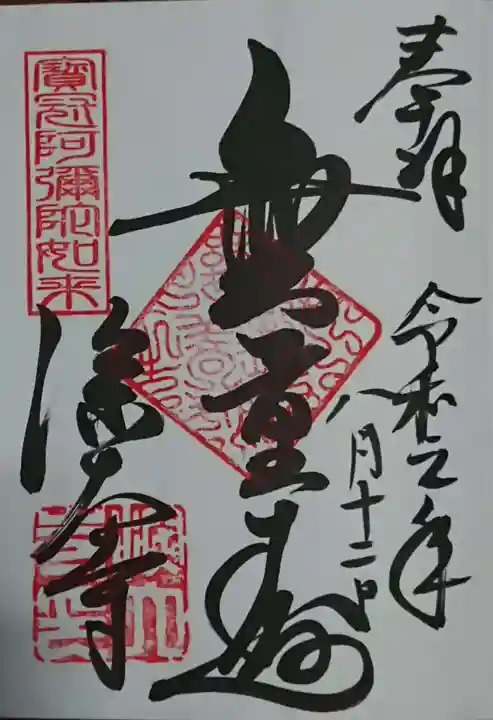 奉拝
令和元年
八月十二日
無量寿
寶冠阿彌陀如来
深大寺